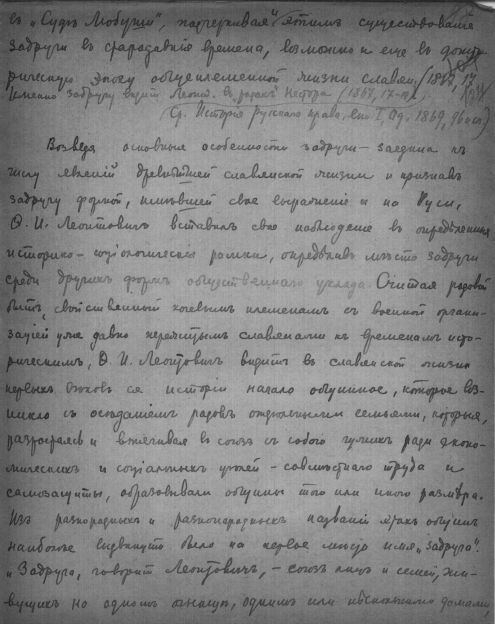 съ "Судъ Любуши", подчеркивая этимъ существованіе
задруги въ стародавнія времена, возможно и еще въ доисто-
рическую эпоху общеплеменной жизни славян (1867, 17
Именно задругу видит Леонт. въ "родахъ" Нестора (1867, 17
Ср. Исторія Русскаго права, вып. I, Од. 1869,
Возведя основныя особенности задруги-заедина къ
числу явленій древнѣйшей славянской жизни и признавъ
задругу формой, имѣвшей свое выраженіе и на Руси,
Ѳ. И. Леонтовичъ вставилъ свое наблюденіе въ опредѣленныя
историко-соціологическія рамки, опредѣливъ мѣсто задруги
среди другихъ формъ общественнаго уклада. Считая родовой
бытъ, свойственный кочевымъ племенамъ съ военной органи-
заціей уже давно пережитымъ славянами къ временамъ исто-
рическимъ, Ѳ. И. Леонтовичъ видитъ въ славянской жизни
первыхъ вѣковъ ея исторіи начало общинное, которое воз-
никло съ осѣданіемъ родовъ отдѣльными семьями, которыя,
разростаясь и втягивая въ союзъ съ собою чужихъ ради эконо-
мическихъ и соціальныхъ цѣлей - совмѣстнаго труда и
самозащиты, образовывали общины того или иного размѣра.
Изъ разнородныхъ и разнонародныхъ названій такихъ общинъ
наиболѣе выдвинуто было на первое мѣсто имя "задруга".
"Задруга, говоритъ Леонтовичъ, - союзъ лицъ и семей, жи-
вущихъ на одномъ огнищѣ, однимъ или нѣсколькими домами,